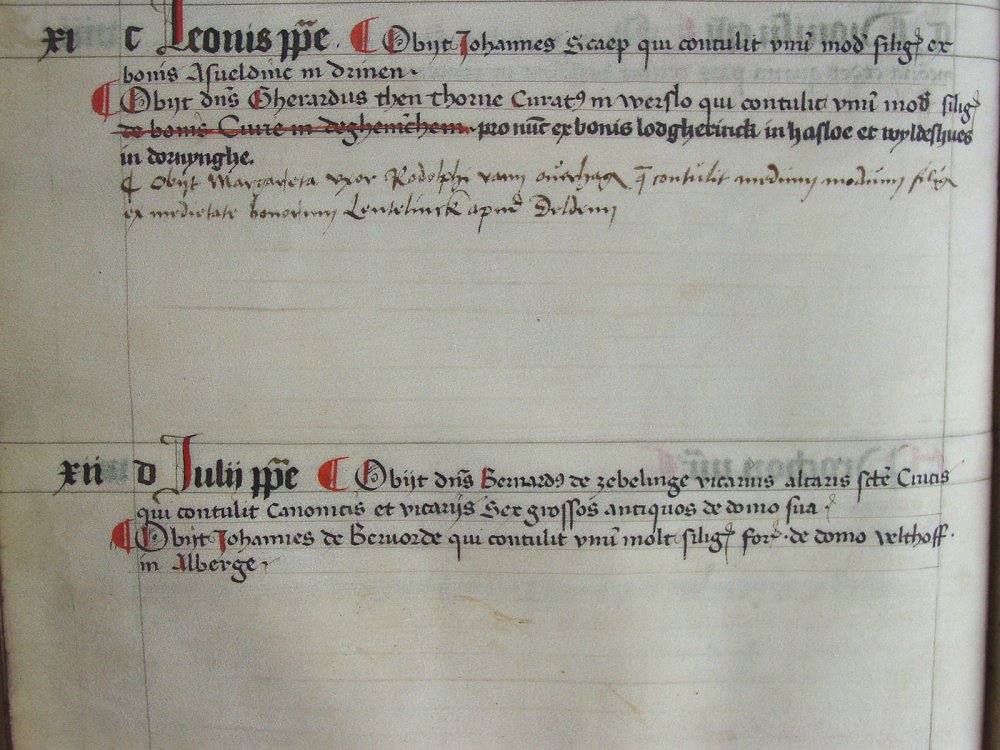 xi c Leonis ppe. ¶ Obijt Johannes Scaep qui contulit vnū mod siligꝭ ex
bonis Asueldinc in drinen.
¶ Obijt dn̄s Gherardus then thorne Curatꝰ in werslo qui contulit vnū mod siligꝭ
de bonis Curie in deghenīchem. pro nūc ex bonis lodgherinck in hasloe et wyldeshues
in dornynghe.
¶ Obijt Margareta vxor Rodolphi vann ouerhagē q̄ contulit medium modium siligꝭ
ex medietate bonorum Lentelinck apud Deldenn
xii d Julij ppe ¶ Obijt dn̄s Bernardꝰ de zebelinge vicarius altaris scte Crucis
qui contulit Canonicis et vicarijs Sex grossos antiquos de domo sua
¶ Obijt Johannes de Beruorde qui contulit vnū molt siligꝭ forꝭ. de domo velthoff.
in Alberge